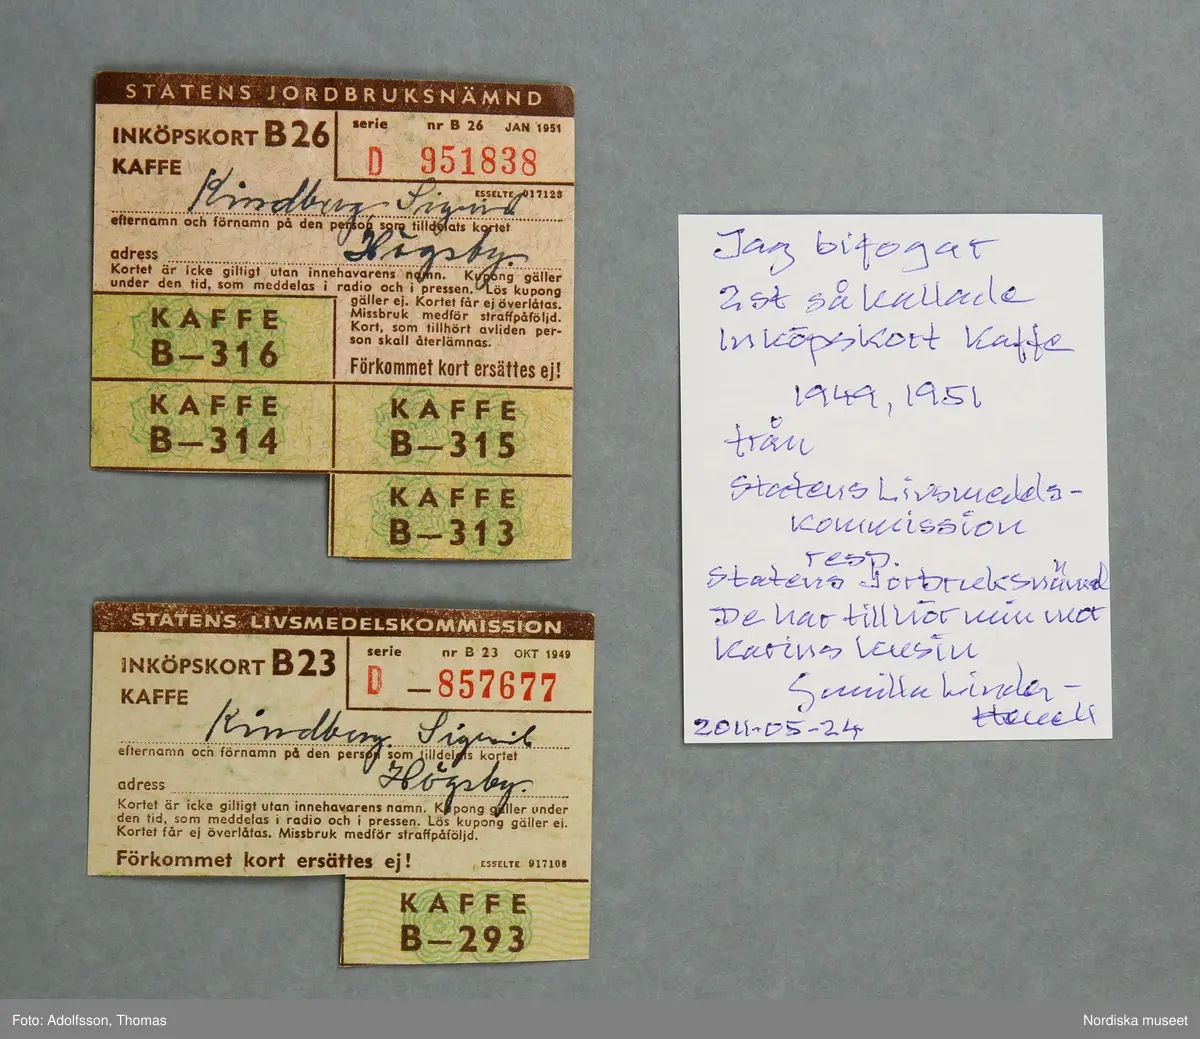 STATENS JORDBRUKSNÄMND
INKÖPSKORT B 26
KAFFE
serie nr B 26 JAN 1951
D 951838
ESSELTE 017123
Kindberg, Sigrid
efternamn och förnamn på den person som tilldelats kortet
adress Högsby.
Kortet är icke giltigt utan innehavarens namn. Kupong gäller
under den tid, som meddelas i radio och i pressen. Lös kupong
gäller ej. Kortet får ej överlåtas.
Missbruk medför straffpåföljd.
Kort, som tillhört avliden per-
son skall återlämnas.
Förkommet kort ersättes ej!
KAFFE
B—316
KAFFE
B—314
KAFFE
B—315
KAFFE
B—313
STATENS LIVSMEDELSKOMMISSION
INKÖPSKORT B 23
KAFFE
serie nr B 23 OKT 1949
D —857677
Kindberg, Sigrid
efternamn och förnamn på den person som tilldelats kortet
adress Högsby.
Kortet är icke giltigt utan innehavarens namn. Kupong gäller under
den tid, som meddelas i radio och i pressen. Lös kupong gäller ej.
Kortet får ej överlåtas. Missbruk medför straffpåföljd.
Förkommet kort ersättes ej!
ESSELTE 917108
KAFFE
B—293
Jag bifogar
2 st så kallade
Inköpskort Kaffe
1949, 1951
från
Statens Livsmedels-
kommission
resp.
Statens Jorbruksnämnd
De har tillhör min mor
Karins kusin
Gunilla Linder-
2011-05-24
Foto: Adolfsson, Thomas
Nordiska museet